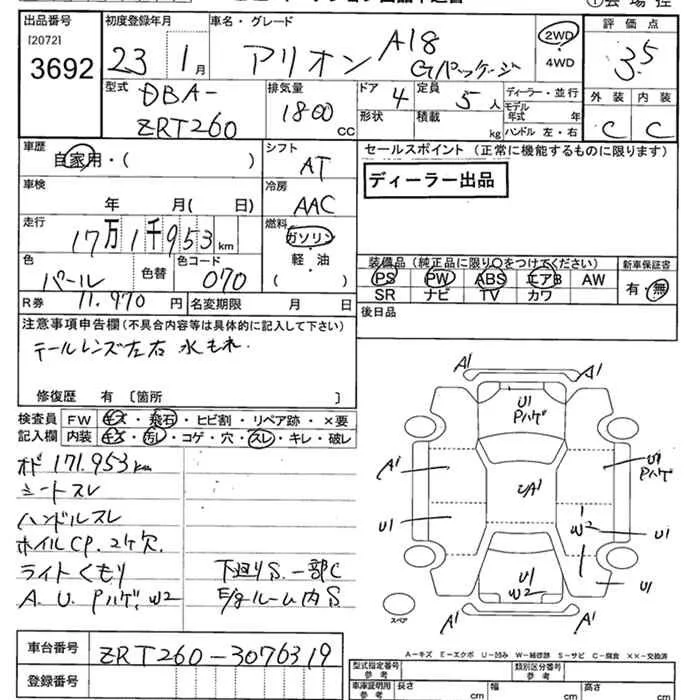 ①会場控
出品番号
[2072]
3692
初度登録年月
23 1月
車名・グレード
アリオン A18 Gパッケージ
2WD
4WD
評価点
3.5
外装 内装
C C
型式
DBA-
ZRT260
排気量
1800 CC
ドア 4
定員 5人
ディーラー・並行
モデル
年式 年
形状
積載 kg
ハンドル 左・右
車歴
自家用・( )
シフト
AT
セールスポイント(正常に機能するものに限ります)
ディーラー出品
車検
年 月( 日)
冷房
AAC
走行
17万1千953km
燃料
ガソリン
軽・油
( )
色
パール
色替
色コード
070
装備品(純正品に限り○をつけてください) 新車保証書
PS PW ABS エアB AW
SR ナビ TV カワ
有・無
R券 11,970円
名変期限 月 日
後日品
注意事項申告欄(不具合内容等は具体的に記入して下さい)
テールレンズ左右 水もれ
修復歴 有 〔箇所 〕
検査員
記入欄
FW キズ・飛石・ヒビ割・リペア跡・×要
内装 キズ・汚レ・コゲ・穴・スレ・キレ・破レ
オド 171.953km
シートスレ
ハンドルスレ
ホイルCP. 2ケ欠
ライトくもり
下廻りS. 一部C
A.U. Pハゲ, W2
E/gルーム内S
A1 A1
U1
Pハゲ
A1
U1
Pハゲ
A1
U1
W2
U1
U1
U1
W2
A1 A1
スペア
A－キズ E－エクボ U－凹み W－補修跡 S－サビ C－腐食 XX－交換済
車台番号
ZRT260-3076319
登録番号
型式指定番号
参考
類別区分番号
参考
車庫証明用
参考
長さ cm
幅 cm
高さ cm